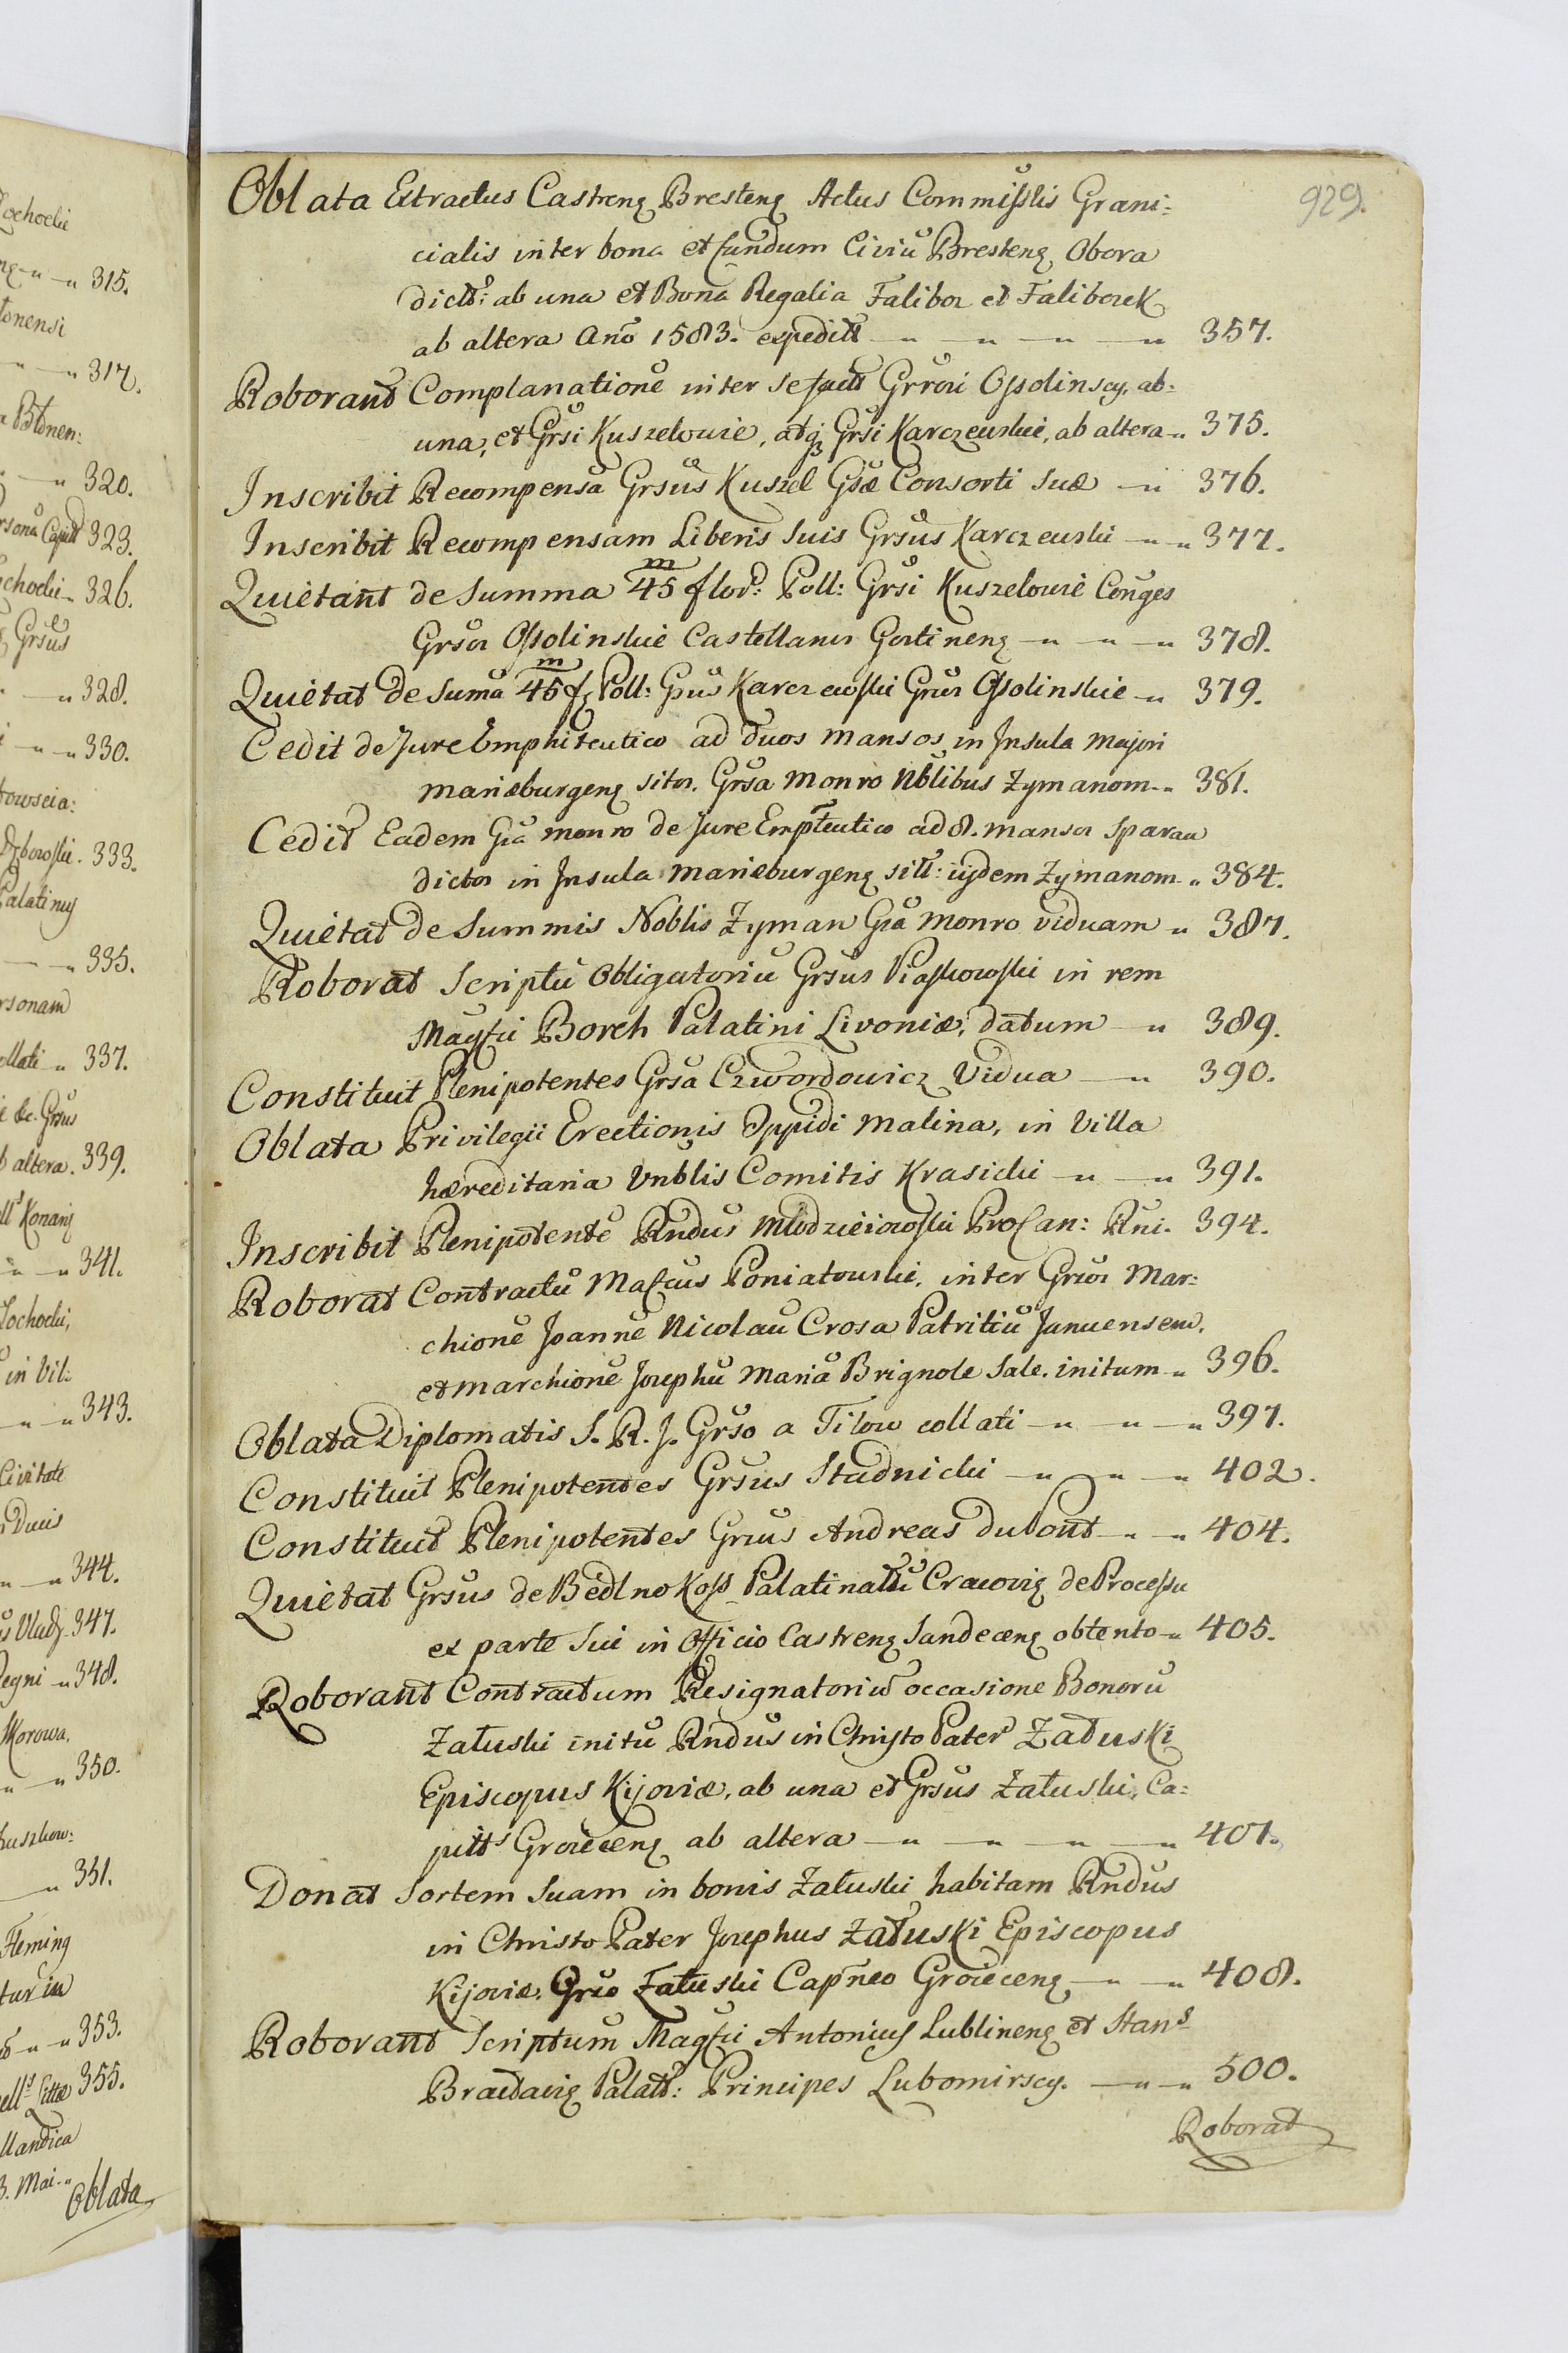 ochocki
" — " 315.
tonensi
" — " 317.
a Błonen:
" — " 320.
rsonā Capit 323.
chocki " 326.
Grsus
" — " 328.
" — " 330.
towscia:
333.
Palatiny
— " 335.
rsonam
ollati " 337.
&c. Grsus
b altera. 339.
Konarz
" — " 341.
Zochocki,
in Vil:
— " — " 343.
Civitate
Ducis
" — " 344.
Vladz. 347.
Regni — " 348.
Korowa,
" — " 350.
— " 351.
Fleming
tur in
— " — " 353.
Littae 355.
llandica
3. Mai. "
Oblata
929.
Oblata Extractus Castrenς Brestenς Actus Commisslis Grani=
cialis inter bona et fundum Civiū Brestenς Obora
dictt: ab una et Bona Regalia Falibor et Faliborek
ab altera Anō 1583. expeditt — " — " — " — " 357.
Roborant Complanationē inter se factt Grrōri Ossolinscy, ab=
una, et Grsi Kuszelowie, atq̨ Grsi Karczewskie, ab altera — " 375.
Inscribit Recompensā Grsūs Kuszel Gsæ Consorti suæ — " 376.
Inscribit Recompensam Liberis suis Grsūs Karczewski — " — " 377.
Quietant de Summa 45 m flor: Poll: Grsi Kuszelowie Conges
Grsos Ossolinskie Castellanos Gostinenς — " — " — " 378.
Quietat de Sumā 45 m fς Poll: Grsūs Karczewski Grsos Ossolinskie — " 379.
Cedit de Jure Emphiteutico ad duos mansos in Insula Majori
marieburgenς sitos. Grsa Monro Nblibus Zymanom — " 381.
Cedit Eadem Gsā monro de Jure Empteutico ad 8. mansos Sparau
dictos in Insula marieburgenς sitt: iisdem Zymanom " 384.
Quietat de Summis Noblis Zyman Gsā Monro viduam " 387.
Roborat Scriptū Obligatoriū Grsus Piaskowski in rem
Magfci Borch Palatini Livoniæ, datum — " 389.
Constituit Plenipotentes Grsa Czwordowicz Vidua — " 390.
Oblata Privilegii Erectionis Oppidi Malina, in Villa
hæreditaria Vnblis Comitis Krasicki — " — " 391.
Inscribit Plenipotentē Rndus Młodzieiowski ProCan: Rni. 394.
Roborat Contractū Mafcus Poniatowski, inter Grsos Mar=
chionē Joannē Nicolaū Crosa Patritiū Januensem,
et marchionē Josephū Mariā Brignole Sale. initum — " 396.
Oblata Diplomatis S. R. J. Grso a Tilow collati — " — " — " 397.
Constituit Plenipotentes Grsus Stadnicki — " — " — " 402.
Constituit Plenipotentes Grsus Andreas duPont — " — " 404.
Quietat Grsus de Bedlno Koss Palatinattū Cracoviς de Processu
ex parte Sui in Officio Castrenς Sandecenς obtento — " 405.
Roborant Contractum Resignatoriū occasione Bonorū
Załuski initū Rndus in Christo Pater Załuski
Episcopus Kijoviæ, ab una et Grsus Załuski, Ca=
pitts Groiecenς ab altera — " — " — " — " 407.
Donat Sortem Suam in bonis Załuski habitam Rndus
in Christo Pater Josephus Załuski Episcopus
Kijoviæ. Grso Załuski Capneo Groiecenς — " — " 408.
Roborant Scriptum Magfci Antonius Lublinenς et Stans
Braclaviς Palatt: Principes Lubomirscy. — " — " 500.
Roborat